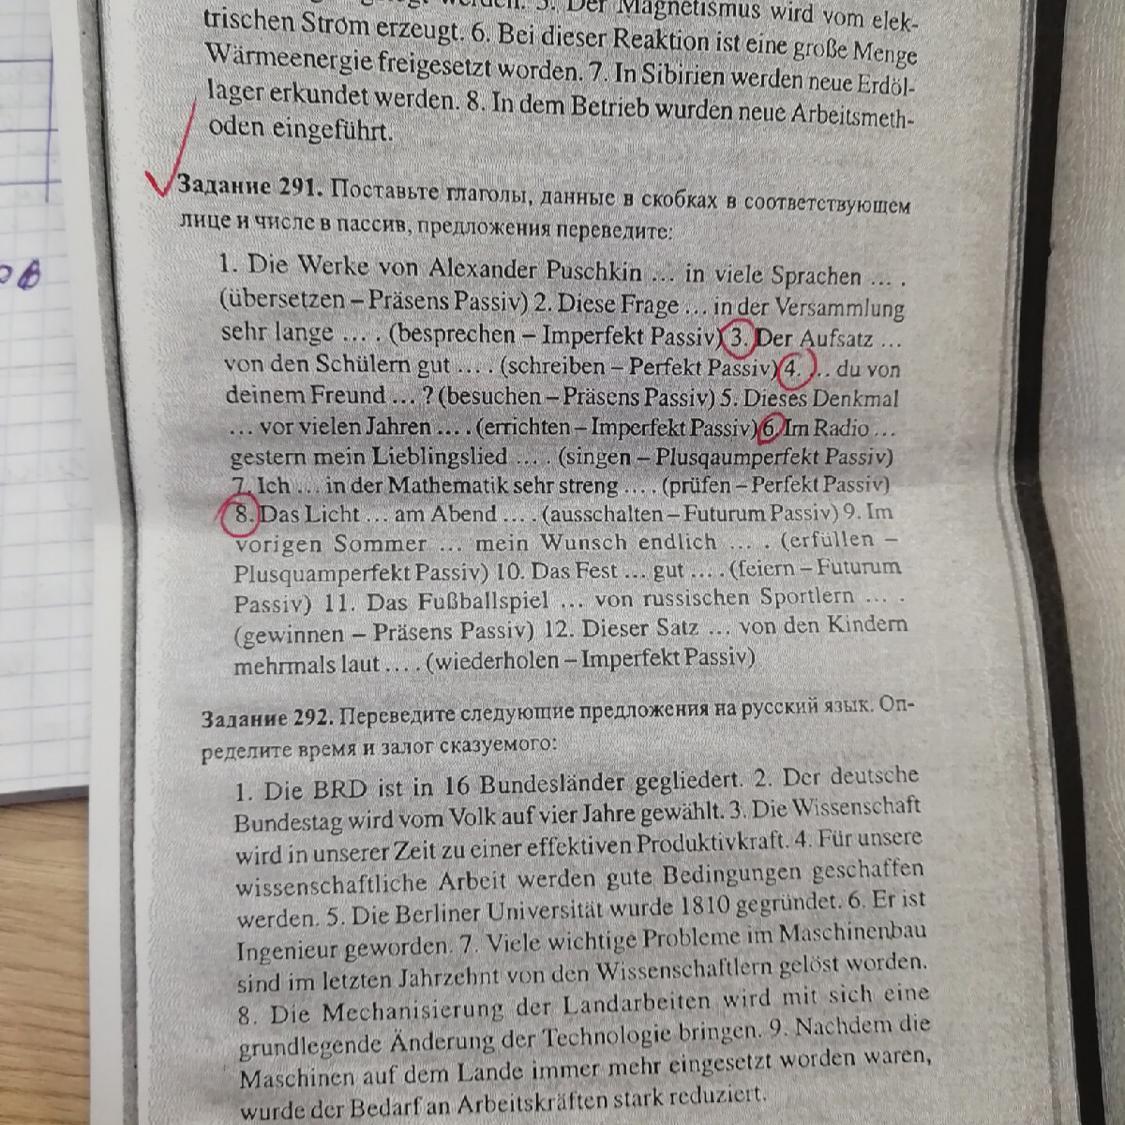 5. Der Magnetismus wird vom elek-
trischen Strom erzeugt. 6. Bei dieser Reaktion ist eine große Menge
Wärmeenergie freigesetzt worden. 7. In Sibirien werden neue Erdöl-
lager erkundet werden. 8. In dem Betrieb wurden neue Arbeitsmeth-
oden eingeführt.
Задание 291. Поставьте глаголы, данные в скобках в соответствующем
лице и числе в пассив, предложения переведите:
1. Die Werke von Alexander Puschkin ... in viele Sprachen ... .
(übersetzen – Präsens Passiv) 2. Diese Frage ... in der Versammlung
sehr lange .... (besprechen – Imperfekt Passiv) 3. Der Aufsatz ...
von den Schülern gut .... (schreiben – Perfekt Passiv) 4. ... du von
deinem Freund ... ? (besuchen – Präsens Passiv) 5. Dieses Denkmal
... vor vielen Jahren .... (errichten – Imperfekt Passiv) 6. Im Radio ...
gestern mein Lieblingslied .... (singen – Plusqaumperfekt Passiv)
7. Ich ... in der Mathematik sehr streng .... (prüfen – Perfekt Passiv)
8. Das Licht ... am Abend .... (ausschalten – Futurum Passiv) 9. Im
vorigen Sommer ... mein Wunsch endlich ... . (erfüllen –
Plusquamperfekt Passiv) 10. Das Fest ... gut .... (feiern – Futurum
Passiv) 11. Das Fußballspiel ... von russischen Sportlern ... .
(gewinnen – Präsens Passiv) 12. Dieser Satz ... von den Kindern
mehrmals laut .... (wiederholen – Imperfekt Passiv)
Задание 292. Переведите следующие предложения на русский язык. Оп-
ределите время и залог сказуемого:
1. Die BRD ist in 16 Bundesländer gegliedert. 2. Der deutsche
Bundestag wird vom Volk auf vier Jahre gewählt. 3. Die Wissenschaft
wird in unserer Zeit zu einer effektiven Produktivkraft. 4. Für unsere
wissenschaftliche Arbeit werden gute Bedingungen geschaffen
werden. 5. Die Berliner Universität wurde 1810 gegründet. 6. Er ist
Ingenieur geworden. 7. Viele wichtige Probleme im Maschinenbau
sind im letzten Jahrzehnt von den Wissenschaftlern gelöst worden.
8. Die Mechanisierung der Landarbeiten wird mit sich eine
grundlegende Änderung der Technologie bringen. 9. Nachdem die
Maschinen auf dem Lande immer mehr eingesetzt worden waren,
wurde der Bedarf an Arbeitskräften stark reduziert.
ов